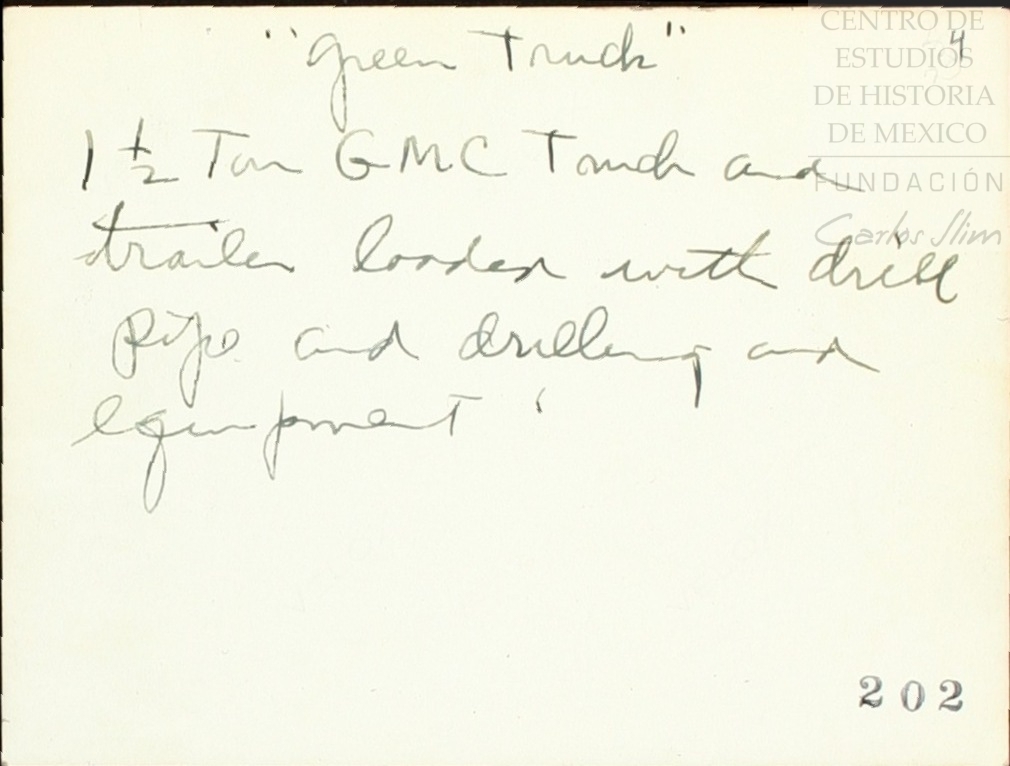 "Green Truck"
4
1 ½ Ton GMC Truck and
trailer loaded with drill
pipe and drilling and
equipment
202
CENTRO DE
ESTUDIOS
DE HISTORIA
DE MEXICO
FUNDACIÓN
Carlos Slim